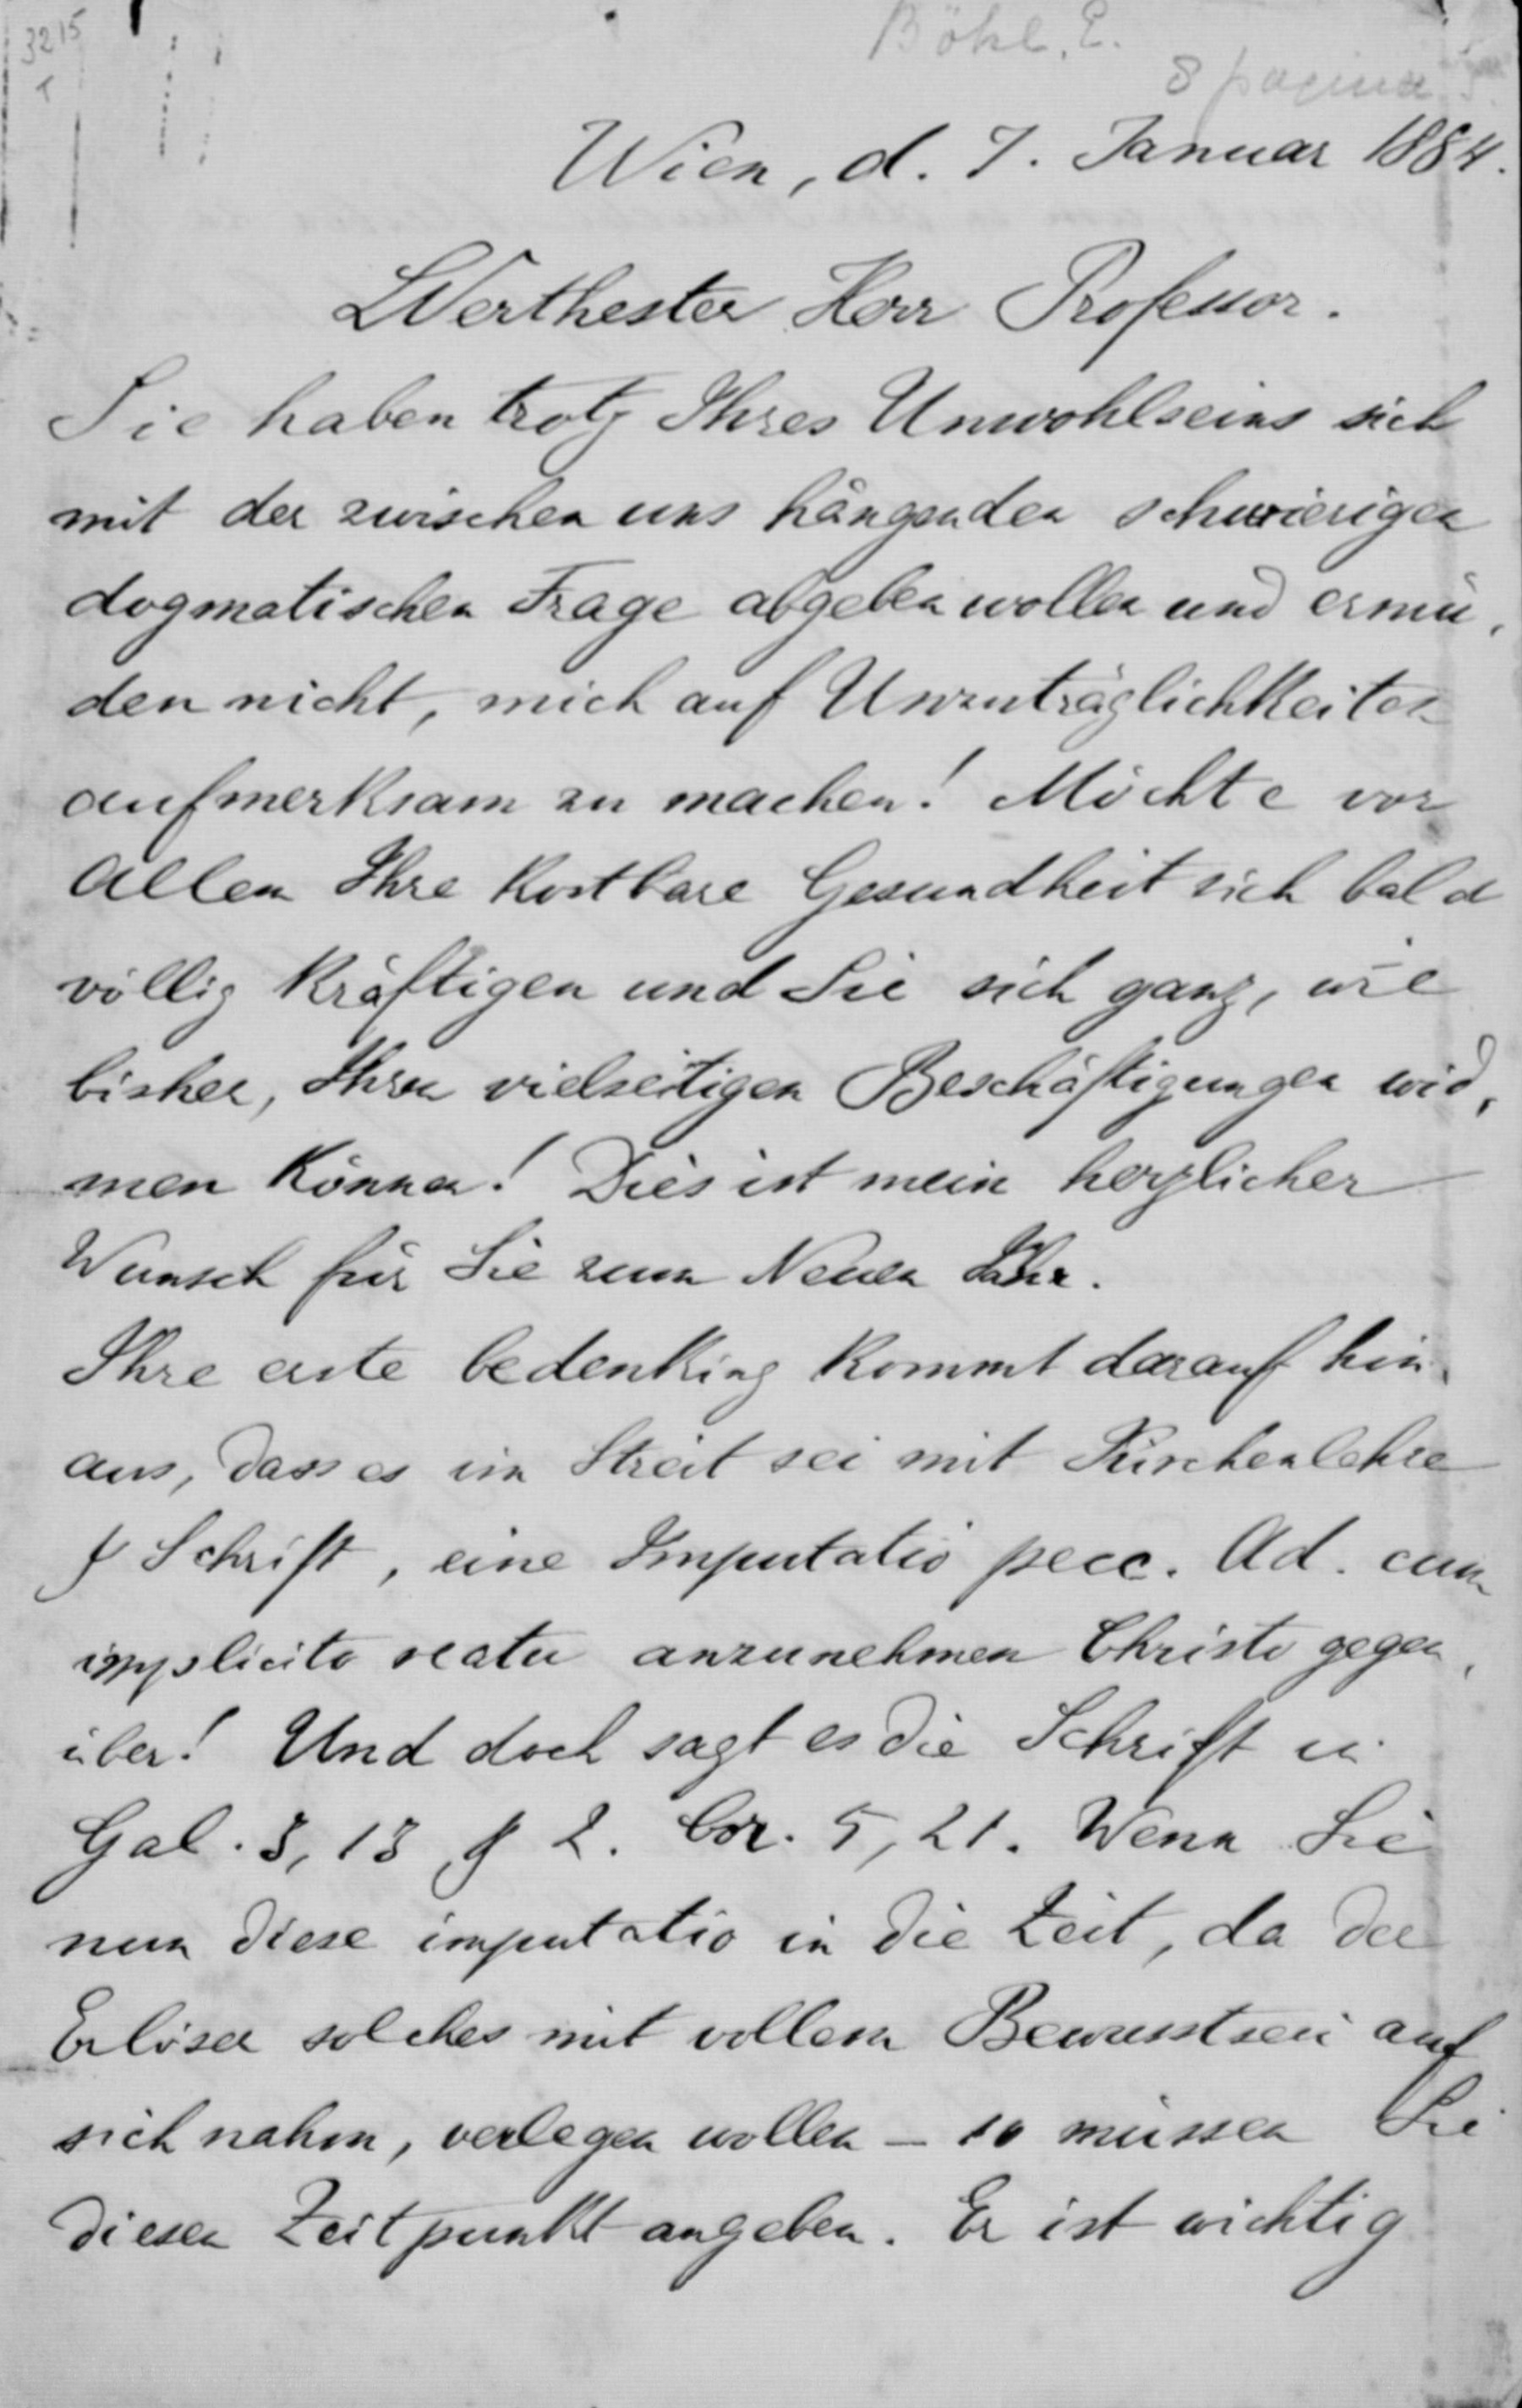 3215
Böhl, E.
8 pagina
Wien, d. 7. Januar 1884.
Werthester Herr Professor.
Sie haben trotz Ihres Unwohlseins sich
mit der zwischen uns hängenden schwierigen
dogmatischen Frage abgeben wollen und ermü-
den nicht, mich auf Unzuträglichkeiten
aufmerksam zu machen! Möchte vor
Allem Ihre kostbare Gesundheit sich bald
völlig kräftigen und Sie sich ganz, wie
bisher, Ihren vielseitigen Beschäftigungen wid-
men können! Dies ist mein herzlicher
Wunsch für Sie zum Neuen Jahr.
Ihre erste bedenking kommt darauf hin-
aus, dass es im Streit sei mit Kirchenlehre
& Schrift, eine Imputatio pecc. Ad. cum
implicito reatu anzunehmen Christo gegen-
über! Und doch sagt es die Schrift in
Gal. 3, 13 & 2. Cor. 5, 21. Wenn Sie
nun diese imputatio in die Zeit, da der
Erlöser solches mit vollem Bewusstsein auf
sich nahm, verlegen wollen – so müssen Sie
diesen Zeitpunkt angeben. Er ist wichtig